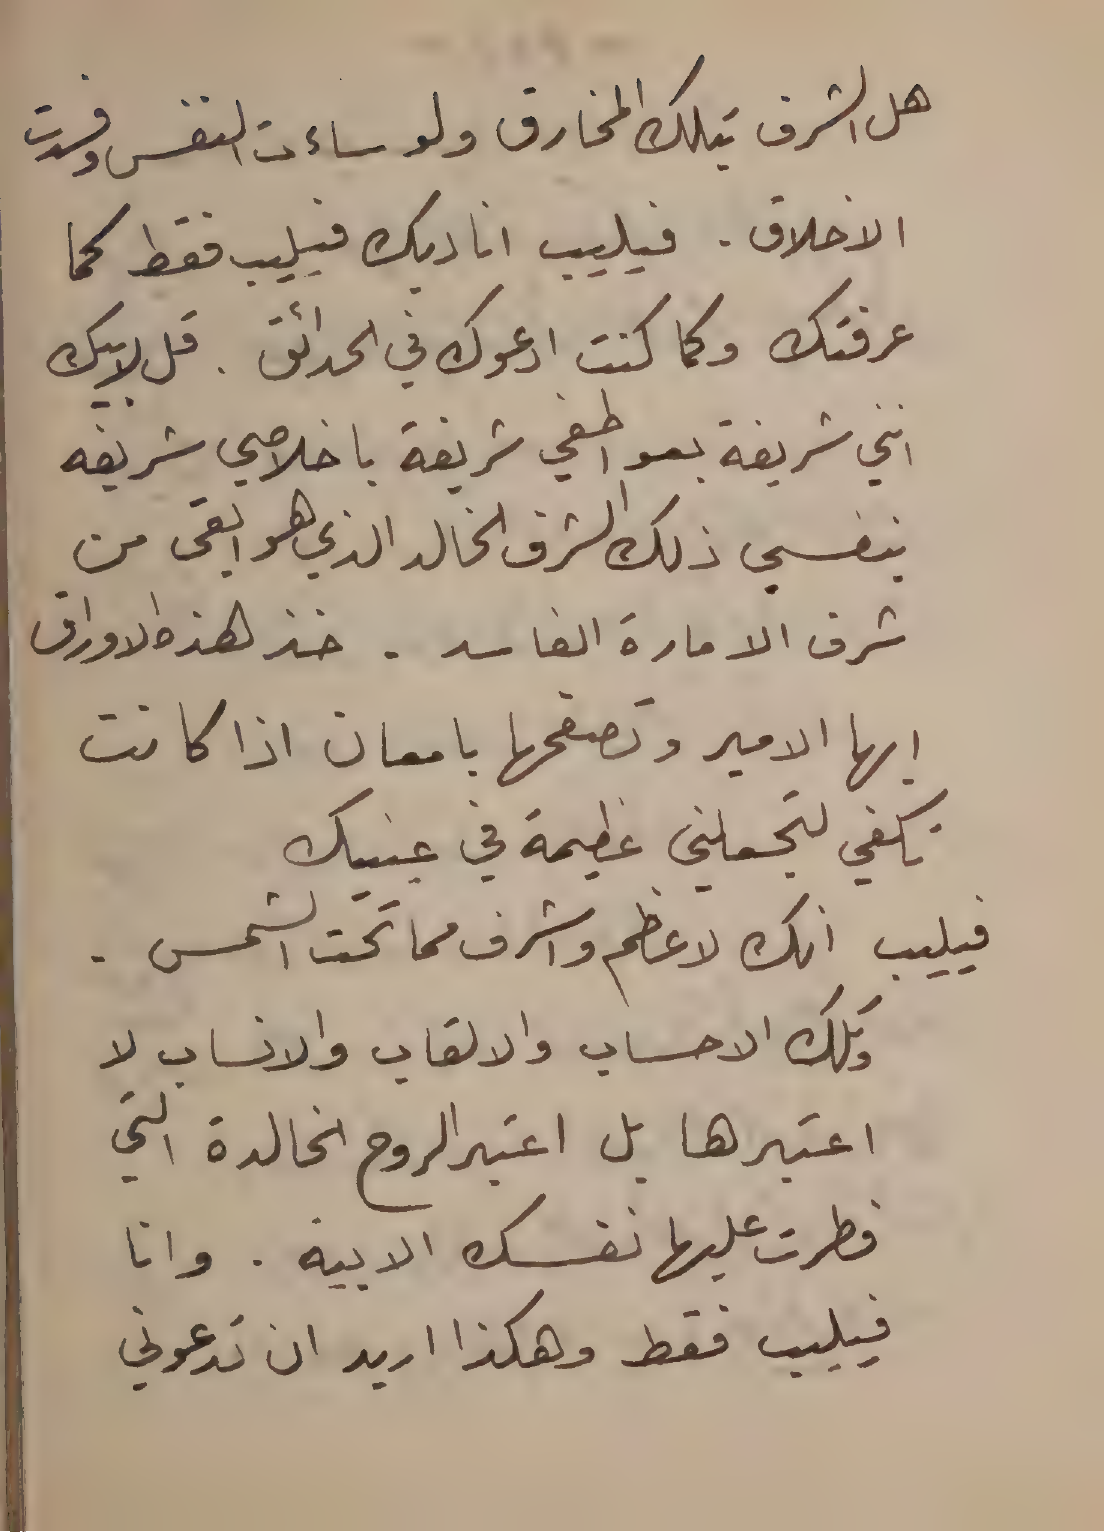 هل الشرف بتلك المخارق ولو ساءت النفس وفسدت
الاخلاق . فيليب اناديك فيليب فقط كما
عرفتك وكما كنت ادعوك في الحدائق . قل لابيك
انني شريفة بعواطفي شريفة باخلاصي شريفه
بنفسي ذلك الشرف الخالد الذي هو ابقى من
شرف الامارة الفاسد . خذ هذه الاوراق
ايها الامير وتصفحها بامعان اذا كانت
تكفي لتجعلني عظيمة في عينيك
فيليب انك لاعظم واشرف مما تحت الشمس .
وتلك الاحساب والالقاب والانساب لا
اعتبرها بل اعتبر الروح الخالدة التي
فطرت عليها نفسك الابية . وانا
فيليب فقط وهكذا اريد ان تدعوني